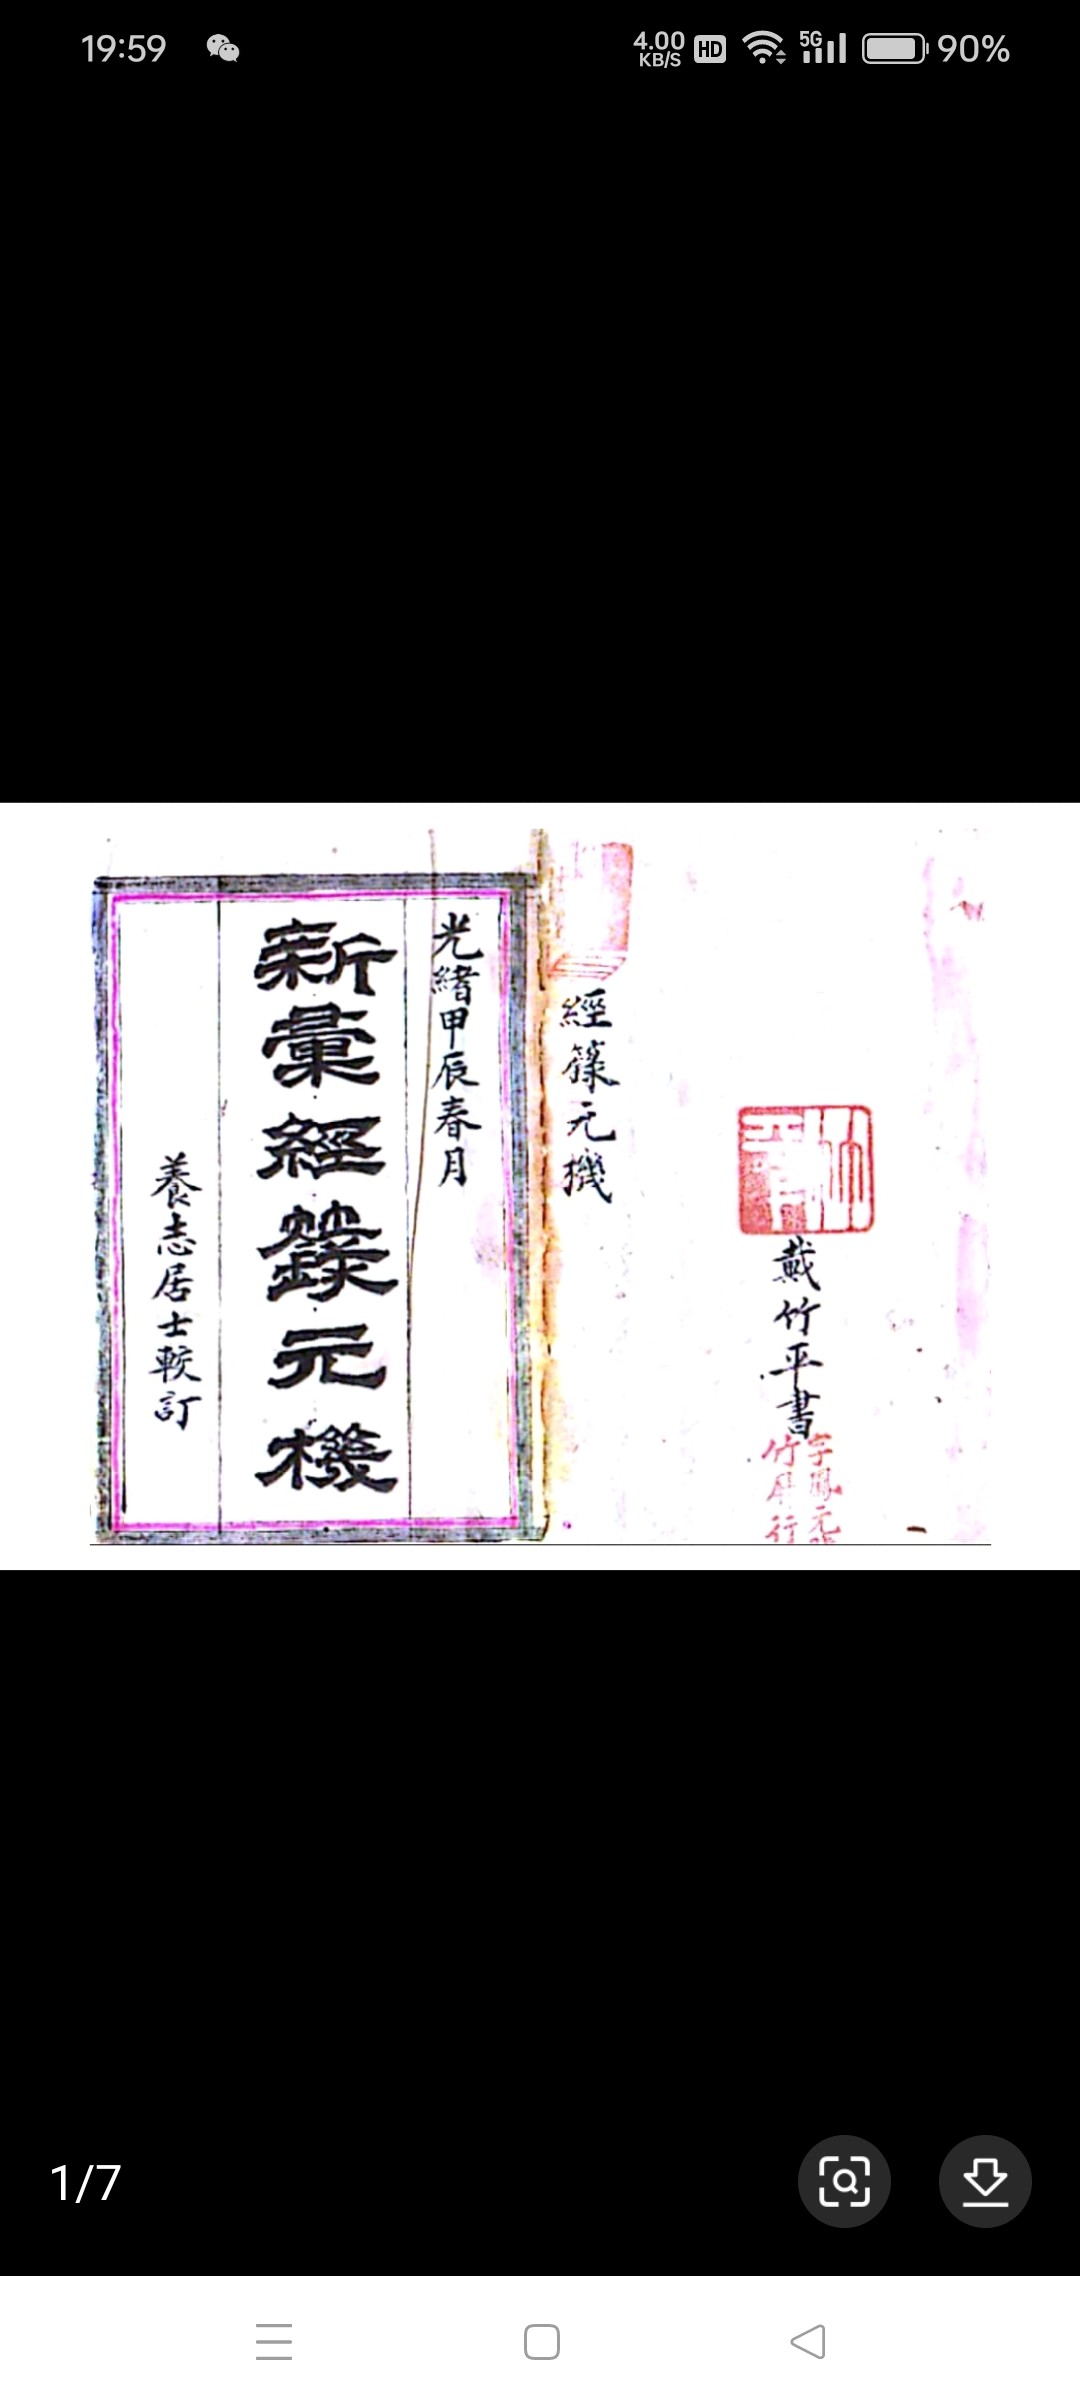 19:59
4.00 KB/S HD 5G 90%
戴竹平書
經籙元機
光緒甲辰春月
新彙經籙元機
養志居士較訂
1/7